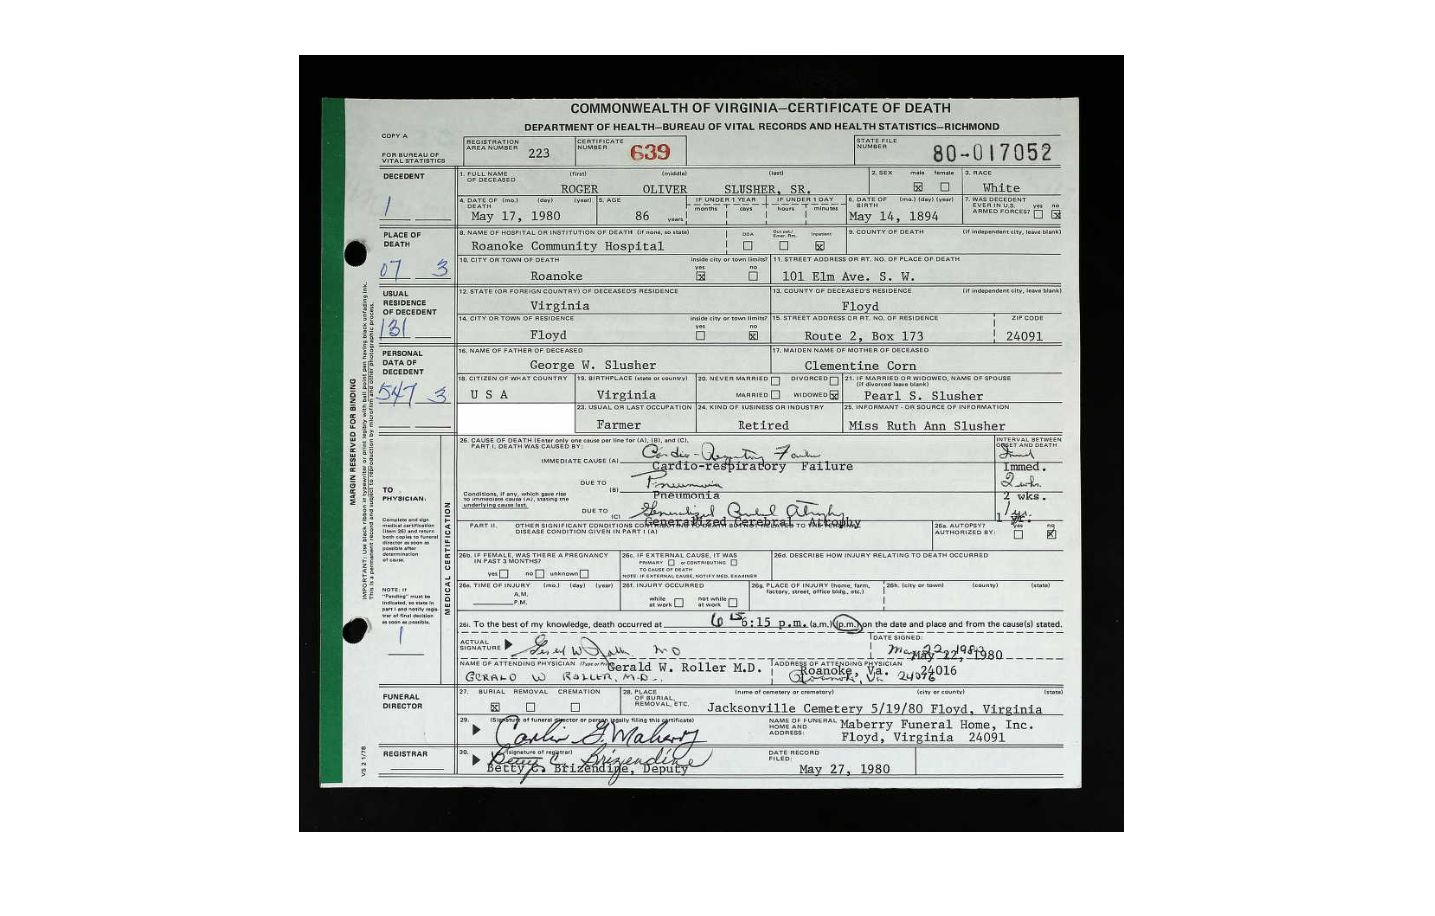 COMMONWEALTH OF VIRGINIA—CERTIFICATE OF DEATH
DEPARTMENT OF HEALTH—BUREAU OF VITAL RECORDS AND HEALTH STATISTICS—RICHMOND
COPY A
FOR BUREAU OF VITAL STATISTICS
REGISTRATION AREA NUMBER 223
CERTIFICATE NUMBER 639
STATE FILE NUMBER 80-017052
DECEDENT
1
1. FULL NAME OF DECEASED (first) (middle) (last)
ROGER OLIVER SLUSHER, SR.
2. SEX male ☒ female ☐
3. RACE White
4. DATE OF DEATH (mo.) (day) (year) May 17, 1980
5. AGE 86 years
IF UNDER 1 YEAR months days
IF UNDER 1 DAY hours minutes
6. DATE OF BIRTH (mo.) (day) (year) May 14, 1894
7. WAS DECEDENT EVER IN U.S. ARMED FORCES? yes ☐ no ☒
PLACE OF DEATH
07 3
8. NAME OF HOSPITAL OR INSTITUTION OF DEATH (if none, so state)
Roanoke Community Hospital
DOA ☐ Out pat./Emer. Rm. ☐ Inpatient ☒
9. COUNTY OF DEATH (if independent city, leave blank)
10. CITY OR TOWN OF DEATH Roanoke
inside city or town limits? yes ☒ no ☐
11. STREET ADDRESS OR RT. NO. OF PLACE OF DEATH
101 Elm Ave. S. W.
USUAL RESIDENCE OF DECEDENT
131
12. STATE (OR FOREIGN COUNTRY) OF DECEASED'S RESIDENCE
Virginia
13. COUNTY OF DECEASED'S RESIDENCE (if independent city, leave blank)
Floyd
14. CITY OR TOWN OF RESIDENCE Floyd
inside city or town limits? yes ☐ no ☒
15. STREET ADDRESS OR RT. NO. OF RESIDENCE ZIP CODE
Route 2, Box 173 24091
PERSONAL DATA OF DECEDENT
547 3
16. NAME OF FATHER OF DECEASED
George W. Slusher
17. MAIDEN NAME OF MOTHER OF DECEASED
Clementine Corn
18. CITIZEN OF WHAT COUNTRY U S A
19. BIRTHPLACE (state or country) Virginia
20. NEVER MARRIED ☐ DIVORCED ☐
MARRIED ☐ WIDOWED ☒
21. IF MARRIED OR WIDOWED, NAME OF SPOUSE (if divorced leave blank)
Pearl S. Slusher
23. USUAL OR LAST OCCUPATION Farmer
24. KIND OF BUSINESS OR INDUSTRY Retired
25. INFORMANT - OR SOURCE OF INFORMATION
Miss Ruth Ann Slusher
MARGIN RESERVED FOR BINDING
IMPORTANT: Use black ribbon in typewriter or print legibly with ball point pen having black unfading ink.
This is a permanent record and subject to reproduction by microfilm and other photographic process.
TO PHYSICIAN:
Complete and sign medical certification (item 26) and return both copies to funeral director as soon as possible after determination of cause.
NOTE: If "Pending" must be indicated, so state in part I and notify registrar of final decision as soon as possible.
1
MEDICAL CERTIFICATION
26. CAUSE OF DEATH (Enter only one cause per line for (A), (B), and (C),
PART I. DEATH WAS CAUSED BY:
INTERVAL BETWEEN ONSET AND DEATH
IMMEDIATE CAUSE (A) Cardio-Respiratory Failure
Cardio-respiratory Failure Immed.
DUE TO (B) Pneumonia 2 wks.
Pneumonia 2 wks.
Conditions, if any, which gave rise to immediate cause (A), stating the underlying cause last.
DUE TO (C) Generalized Cerebral Atrophy
Generalized Cerebral Atrophy
PART II. OTHER SIGNIFICANT CONDITIONS CONTRIBUTING TO DEATH BUT NOT RELATED TO THE TERMINAL DISEASE CONDITION GIVEN IN PART I (A)
26a. AUTOPSY? AUTHORIZED BY: yes ☐ no ☒
26b. IF FEMALE, WAS THERE A PREGNANCY IN PAST 3 MONTHS?
yes ☐ no ☐ unknown ☐
26c. IF EXTERNAL CAUSE, IT WAS
PRIMARY ☐ or CONTRIBUTING ☐
TO CAUSE OF DEATH
NOTE: IF EXTERNAL CAUSE, NOTIFY MED. EXAMINER
26d. DESCRIBE HOW INJURY RELATING TO DEATH OCCURRED
26e. TIME OF INJURY (mo.) (day) (year)
A.M.
P.M.
26f. INJURY OCCURRED
while at work ☐ not while at work ☐
26g. PLACE OF INJURY (home, farm, factory, street, office bldg., etc.)
26h. (city or town) (county) (state)
26i. To the best of my knowledge, death occurred at 6 15 6:15 p.m. (a.m.) (p.m.) on the date and place and from the cause(s) stated.
ACTUAL SIGNATURE Gerald W Roller MD
DATE SIGNED: May 22, 1980
May 22, 1980
NAME OF ATTENDING PHYSICIAN (Type or Print) Gerald W. Roller M.D.
GERALD W ROLLER, M.D.
ADDRESS OF ATTENDING PHYSICIAN
Roanoke, Va. 24016
Roanoke, Va 24016
FUNERAL DIRECTOR
27. BURIAL ☒ REMOVAL ☐ CREMATION ☐
28. PLACE OF BURIAL, REMOVAL, ETC. (name of cemetery or crematory) (city or county) (state)
Jacksonville Cemetery 5/19/80 Floyd, Virginia
29. (Signature of funeral director or person legally filing this certificate)
Carlin G. Maberry
NAME OF FUNERAL HOME AND ADDRESS: Maberry Funeral Home, Inc.
Floyd, Virginia 24091
REGISTRAR
30. (signature of registrar)
Betty C. Brizendine
Betty C. Brizendine, Deputy
DATE RECORD FILED:
May 27, 1980
VS 2 1/78